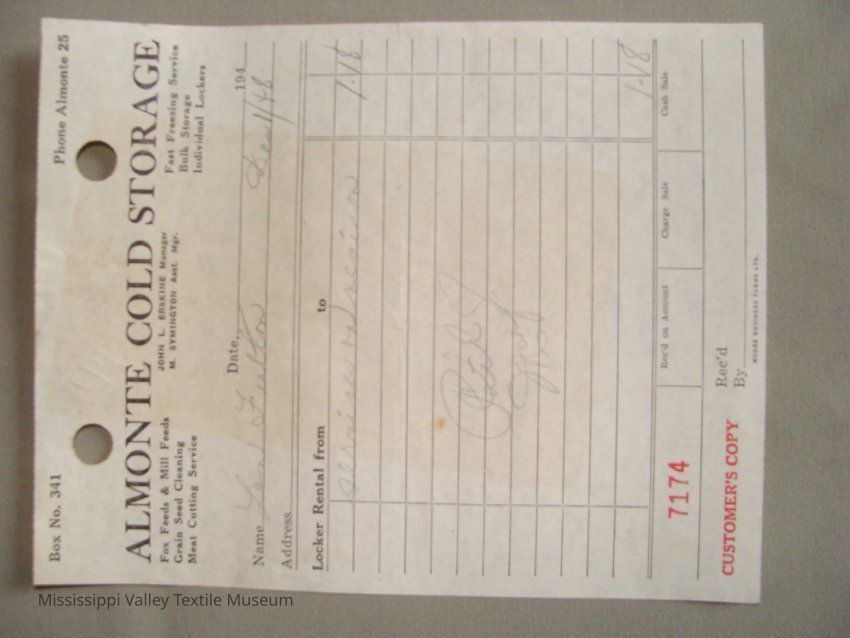 Box No. 341 Phone Almonte 25
ALMONTE COLD STORAGE
Fox Feeds & Mill Feeds JOHN L. ERSKINE Manager Fast Freezing Service
Grain Seed Cleaning M. SYMINGTON Asst. Mgr. Bulk Storage
Meat Cutting Service Individual Lockers
Date, 194
Name Fulton Dec 1/48
Address
Locker Rental from to
services on 1.18
Paid
1.18
Rec'd on Account Charge Sale Cash Sale
7174
Rec'd
CUSTOMER'S COPY By
MOORE BUSINESS FORMS LTD.
Mississippi Valley Textile Museum